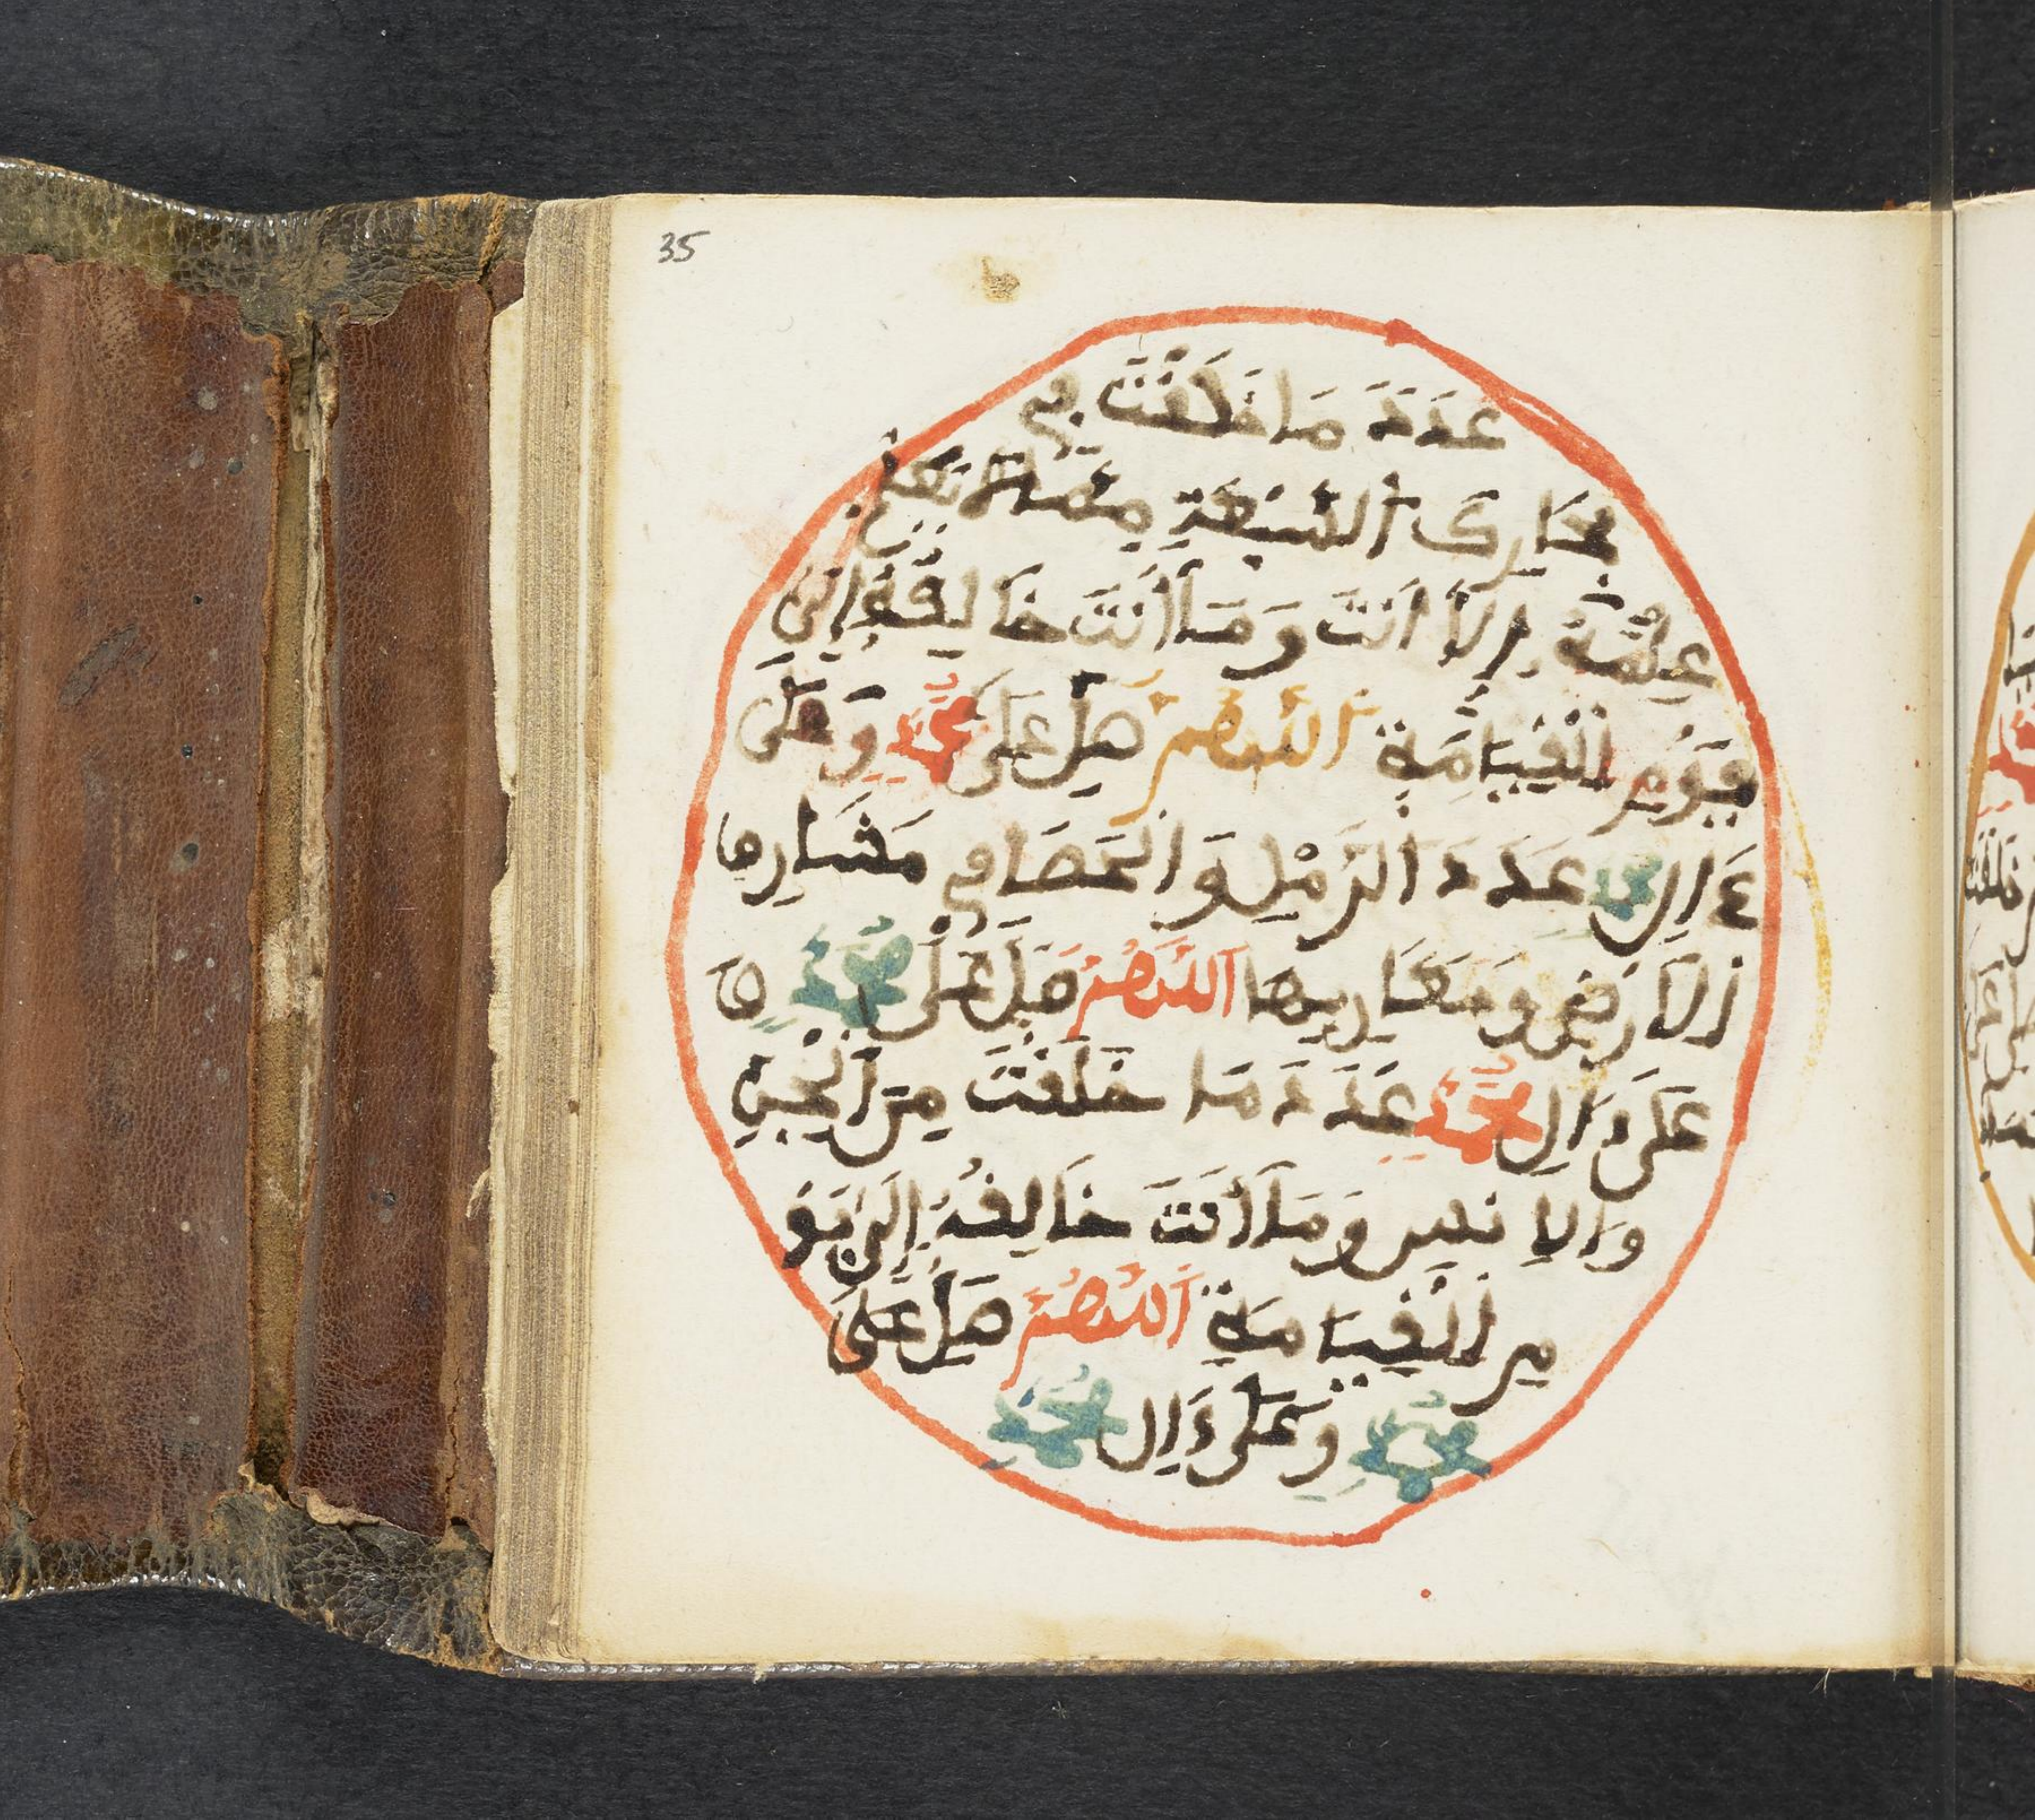 35
عَدَدَ مَا خَلَقْتَ فِي
بِحَارِكَ السَّبْعَةِ مِمَّا لَا يَعْلَمُ
عِلْمَهُ إِلَّا أَنْتَ وَمَا أَنْتَ خَالِقُهُ إِلَى
يَوْمِ الْقِيَامَةِ اللَّهُمَّ صَلِّ عَلَى مُحَمَّدٍ وَعَلَى
ءَالِ مُحَمَّدٍ عَدَدَ الرَّمْلِ وَالْحَصَا فِي مَشَارِقِ
الْأَرْضِ وَمَغَارِبِهَا اللَّهُمَّ صَلِّ عَلَى مُحَمَّدٍ وَ
عَلَى ءَالِ مُحَمَّدٍ عَدَدَ مَا خَلَقْتَ مِنَ الْجِنِّ
وَالْإِنْسِ وَمَا أَنْتَ خَالِقُهُ إِلَى يَوْ
مِ الْقِيَامَةِ اللَّهُمَّ صَلِّ عَلَى
مُحَمَّدٍ وَعَلَى ءَالِ مُحَمَّدٍ